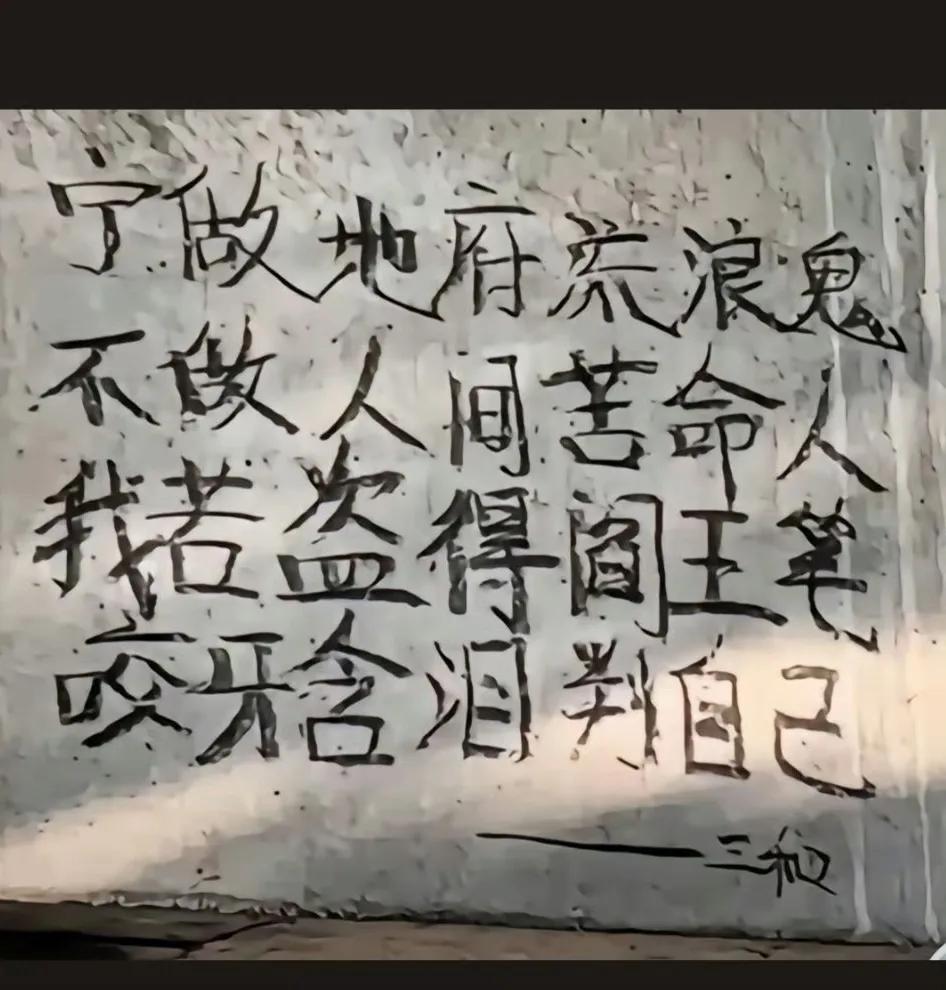 宁做地府流浪鬼
不做人间苦命人
我若盗得阎王笔
咬牙含泪判自己
——三和